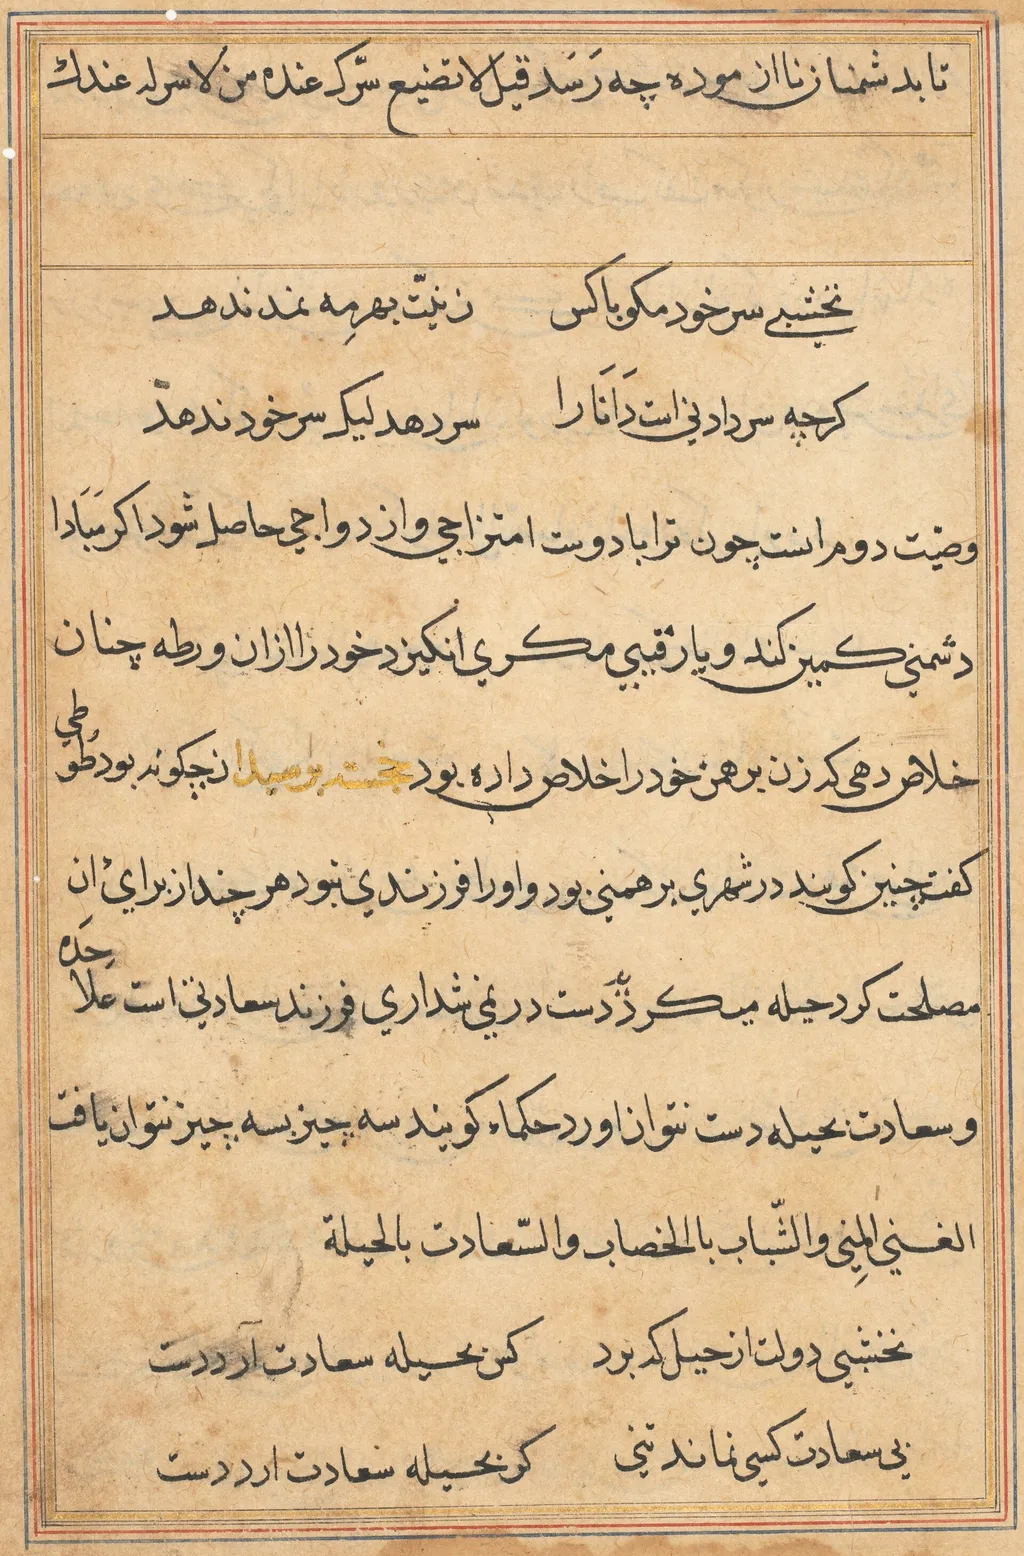 تا بد شمنان نا از موده چه رَسَد قیل لا تضیع سّرک عنده من لا سر له عندک
نخشبی سر خود مکو با کس
زنیّت بهرِمه نمد ندهد
کرچه سر دادنی است دَانَا را
سر دهد لیک سر خود ندهد
وصّیت دوم انست چون ترا با دوست امتزاجی و از دواجی حاصل شود اکر مَبَادا
دشمنی کمین کند و یا رقیبی مکری انکیزد خود را ازان ورطه چنان
خلاص دهی که زن برهمن خود را خلاص داده بود خجسته پرسید ان چکونه بود طُوطی
کفت چنین کویند در شهری برهمنی بود و او را فرزندی نبود هر چند از برایٔ ان
مصلحت کرد حیله میکرد دست در نمی شد اری فرزند سعادتی است علاحَده
و سعادت بحیله دست نتوان اورد حکماء کویند سه چیز بسه چیز نتوان یافت
الغنی المِنی والشّباب با الخصاب والسّعادت بالحیلة
نخشبی دولت از حیل که برد
کس بحیله سعادت آرد دست
بی سعادت کسی نماند تنی
کو بحیله سعادت ارد دست